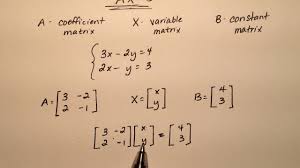 A - coefficient matrix X - variable matrix B - constant matrix
{ 3x - 2y = 4
2x - y = 3
A = [3 -2
2 -1] X = [x
y] B = [4
3]
[3 -2
2 -1] [x
y] = [4
3]